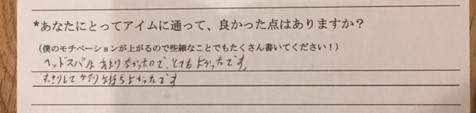 *あなたにとってアイムに通って、良かった点はありますか？
（僕のモチベーションが上がるので些細なことでもたくさん書いてください！）
ヘッドスパは あまり なかったので、とても よかったです。
すっきりして かなり 気持ちよかったです